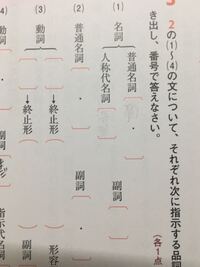 2の(1)～(4)の文について、それぞれ次に指示する品詞
き出し、番号で答えなさい。
(各1点
(1)
名詞
普通名詞
人称代名詞
副詞
(2)
普通名詞
副詞
(3)
動詞
終止形
終止形
形容
副詞
(4)
副詞
指示代名詞